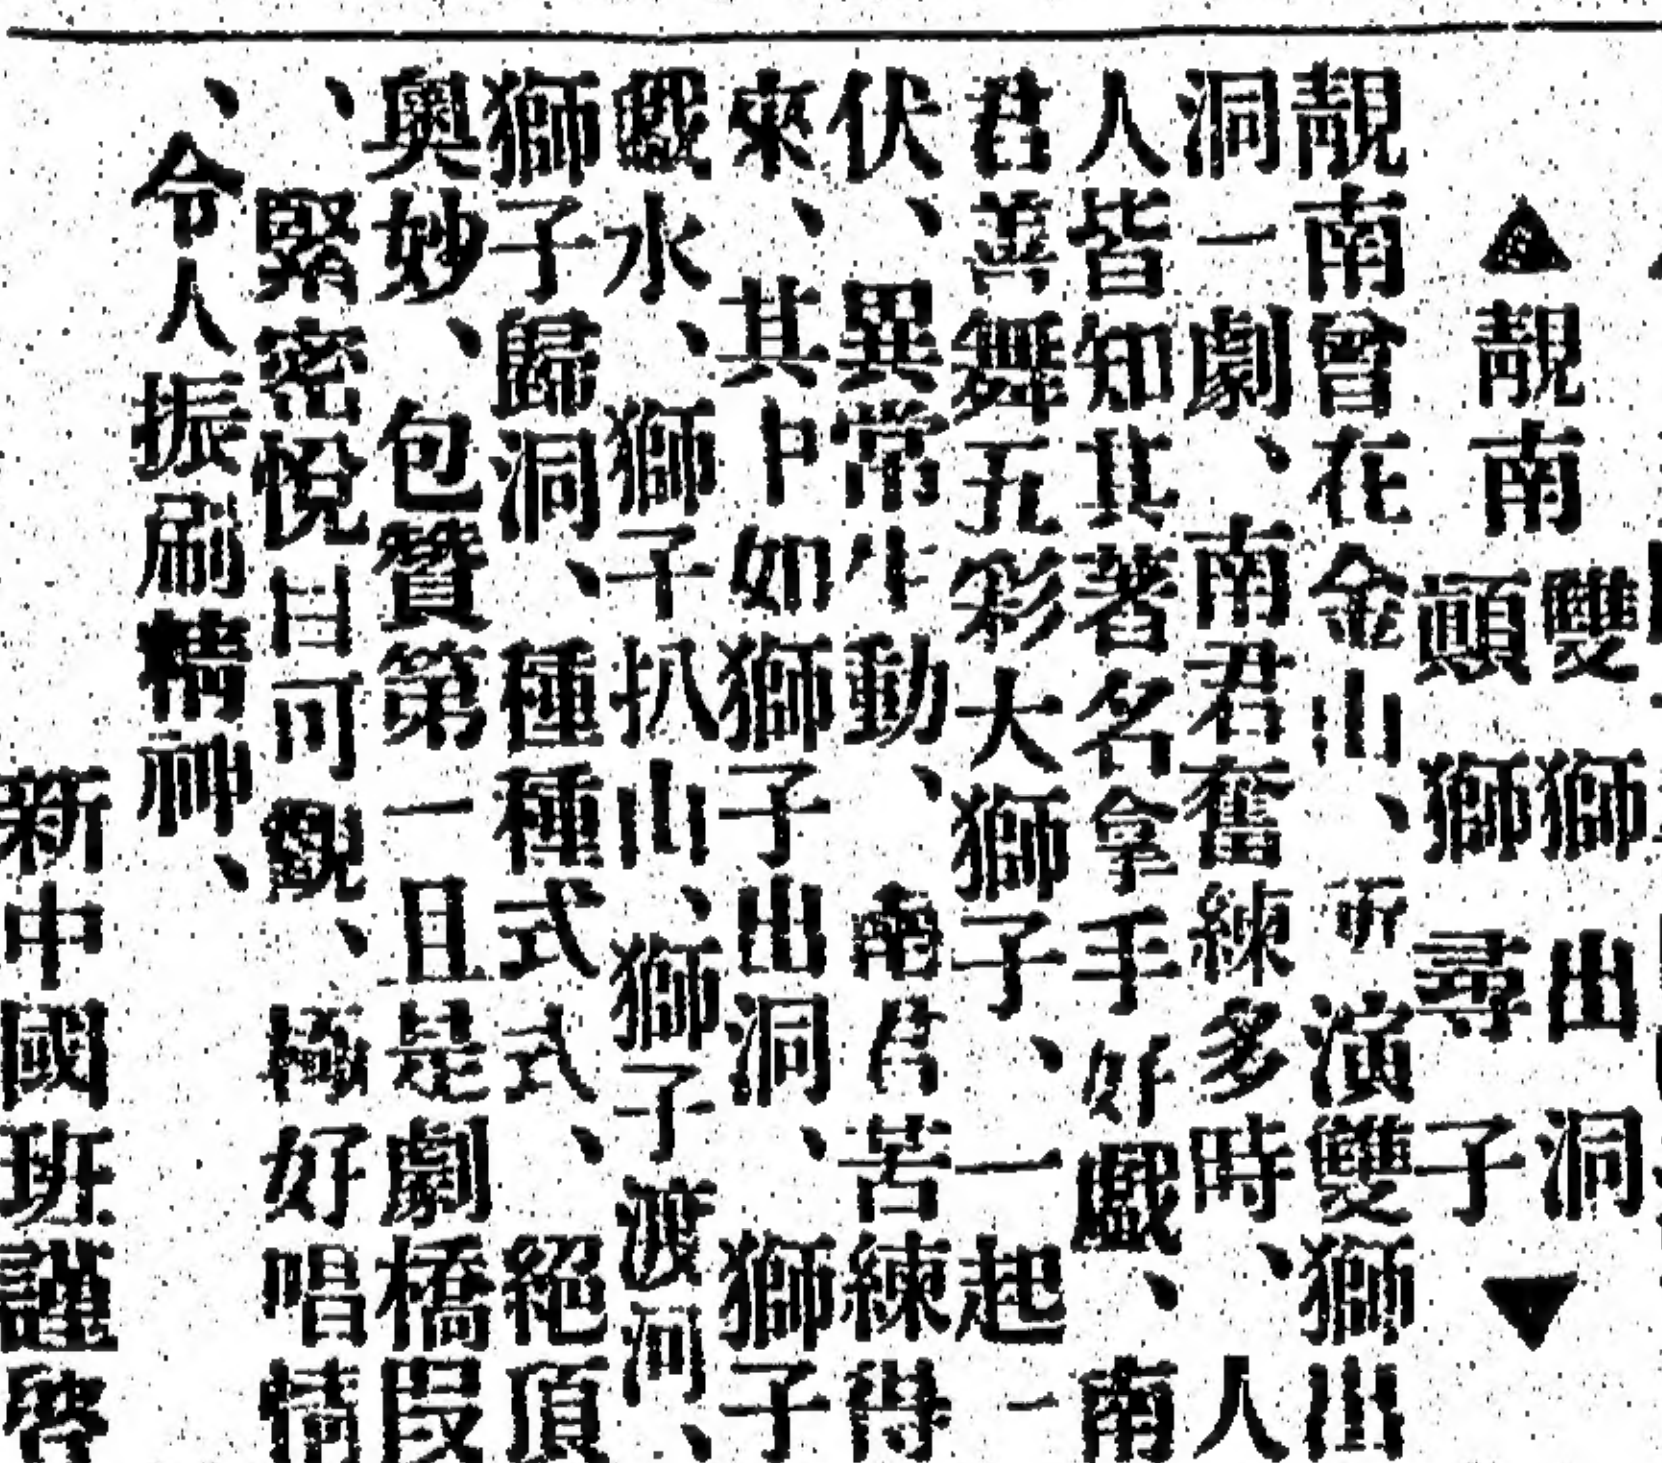 ▲靚南
雙獅出洞
顛獅尋子
▼
靚南曾在金山、所演雙獅出
洞一劇、南君奮練多時、人
人皆知其著名拿手好戲、南
君善舞五彩大獅子、一起一
伏、異常生動、南君苦練得
來、其中如獅子出洞、獅子
戲水、獅子扒山、獅子渡河、
獅子歸洞、種種式式、絕頂
奧妙、包贊第一且是劇橋段
、緊密悅目可觀、極好唱情
、令人振刷精神、
新中國班謹啓